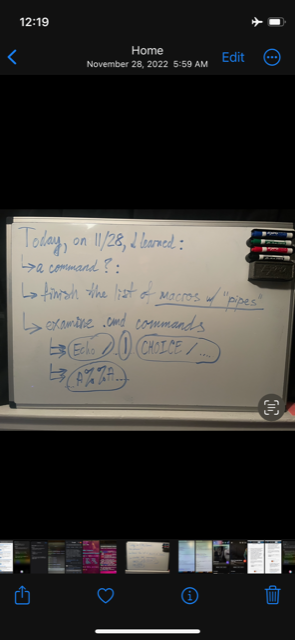 12:19
Home
November 28, 2022 5:59 AM
Edit
Today, on 11/28, I learned:
↳ a command ? :
↳ finish the list of macros w/ "pipes"
↳ examine .cmd commands
↳ Echo / . | CHOICE / ...
↳ A%%A...